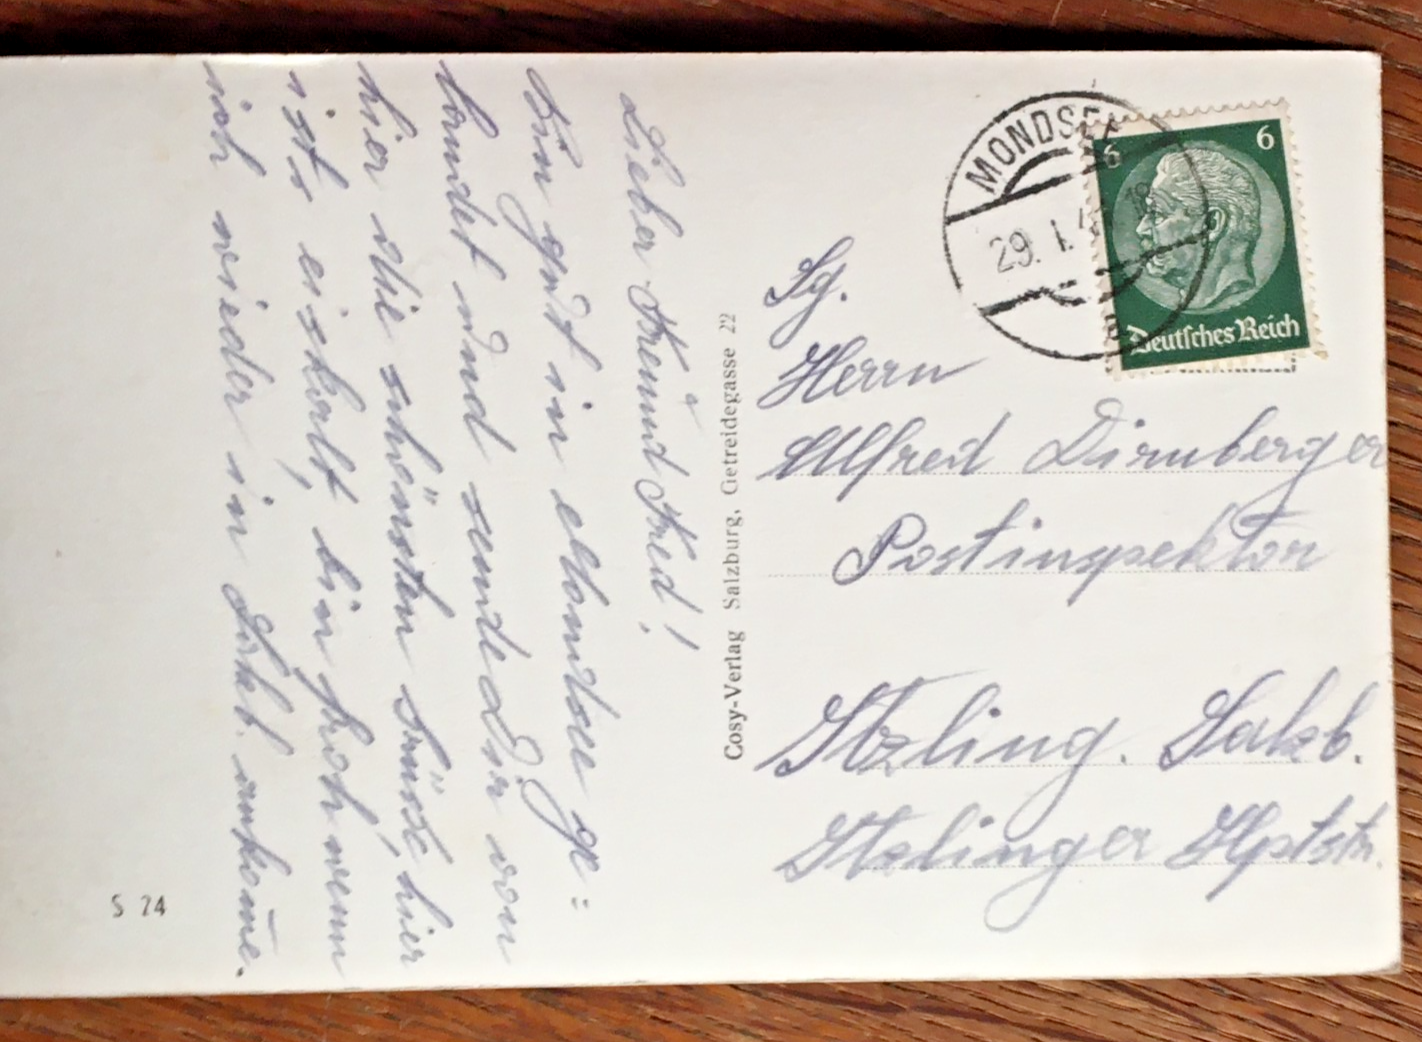 Lieber Freund Fred!
Bin gut in Mondsee ge=
landet und sende Dir von
hier die schönsten Grüsse, hier
ists eiskalt, bin froh wenn
ich wieder in Salzb. ankome.
S 24
Cosy-Verlag Salzburg, Getreidegasse 22
MONDSEE
29. I. 18
6 6
Deutsches Reich
Sg.
Herrn
Alfred Dirnberger
Postinspektor
Itzling. Salzb.
Itzlinger Hptstr.